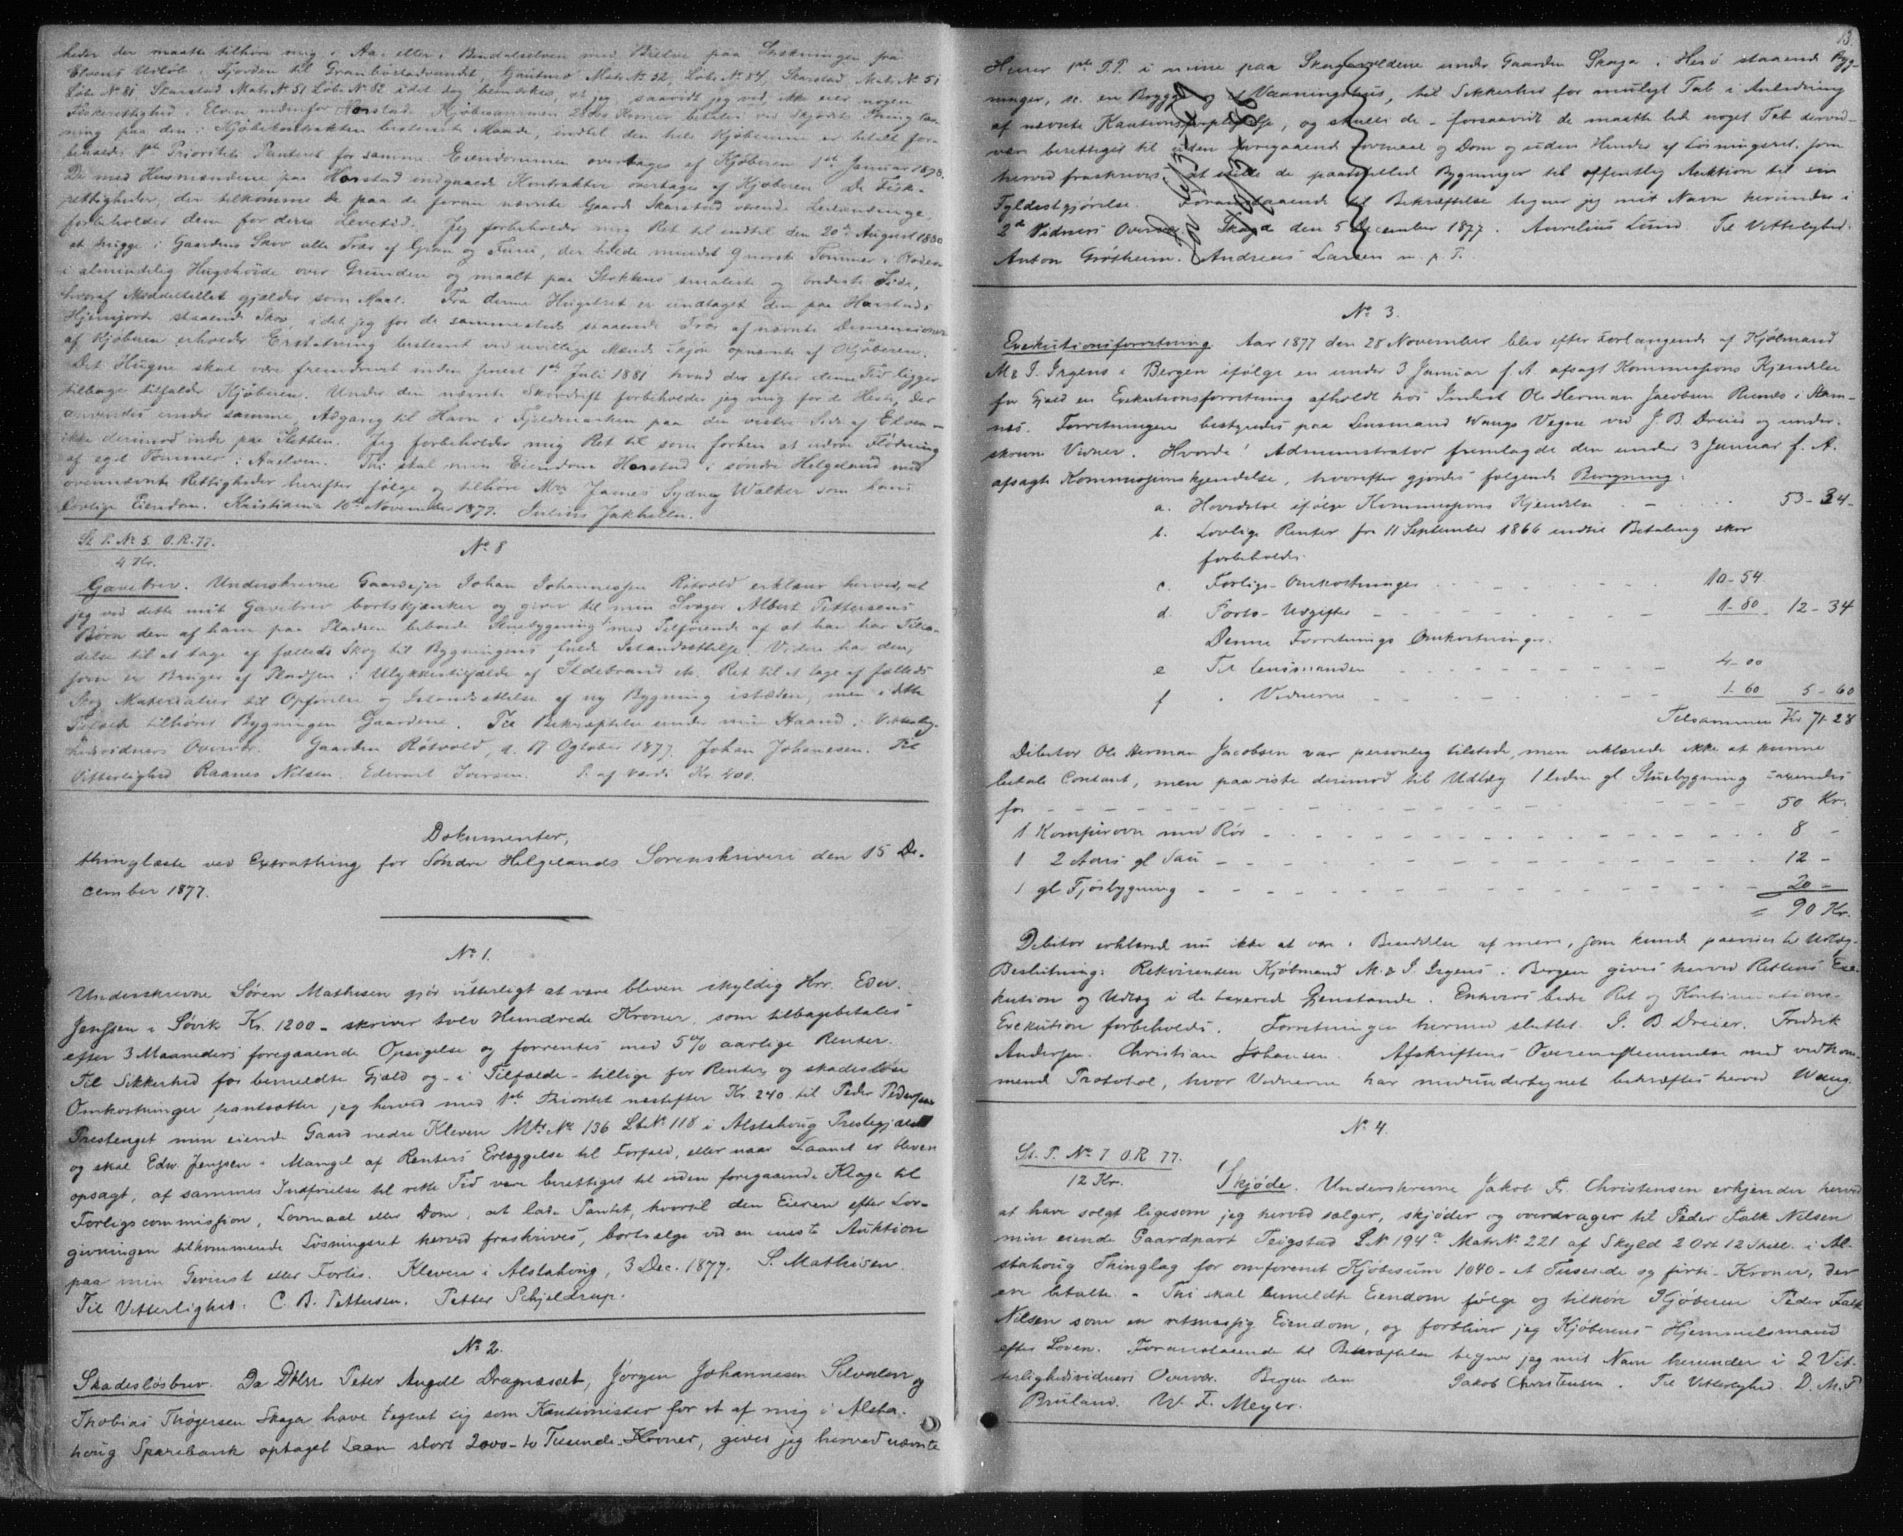 heder der maatte tilhøre mig i Aa- eller i Bindalselven med Bielve paa Strækningen fra
Elvens Udløb i Fjorden til Granbostadvandet, Gautmo Matr. N. 52, Løbe N. 84, Skarstad Matr. N. 51
Løbe N. 81 Skarstad Matr. N. 51 Løb. N. 82 idet dog bemærkes, at jeg saavidt jeg ved, ikke eier nogen
Fiskerettighed i Elven nedenfor Horstad. Kjøbesummen Kroner betales ved Skjødets Thinglæs-
ning paa den i Kjøbekontrakten bestemte Maade, indtil den hele Kjøbesum er betalt for-
beholdes 1ste Prioritets Panteret for samme. Eiendommen overtages af Kjøberen 1ste Januar 1878.
De med Husmændene paa Horstad indgaaede Kontrakter overtages af Kjøberen. De Fiske-
rettigheder, der tilkomme de paa de foran nævnte Gaard Skarstad boende Leilændinge,
forbeholdes dem for deres Levetid. Jeg forbeholder mig Ret til indtil den 20de August 1880
at hugge i Gaardens Skov alle Træer af Gran og Furu, der holde mindst 9 norsk Tommer i Roden
i almindelig Hugshøide over Grunden og maalt paa Stokkens smaleste og bredeste Side,
hvoraf Middeltallet gjælder som Maal. Fra denne Hugstret er undtaget den paa Horstads
Hjemjorde staaende Skov, idet jeg for de sammesteds staaende Træer af nævnte Dimensioner
af Kjøberen erholder Erstatning bestemt ved uvillige Mænds Skjøn opnævnte af Kjøberen.
Det Hugne skal være fremdrevet inden first 1ste Juli 1881 hvad der efter denne Tid ligger
tilbage tilfalder Kjøberen. Under den nævnte Skovdrift forbeholder jeg mig for de Heste, der
anvendes under samme, Adgang til Havn i Fjeldmarken paa den vestre Side af Elven –
ikke derimod inde paa Sletten. Jeg forbeholder mig Ret til som forhen at udøve Flødning
af eget Tømmer i Aaelven. Thi skal min Eiendom Horstad i søndre Helgeland med
ovennævnte Rettigheder herefter følge og tilhøre Mr. James Sydney Walker som hans
lovlige Eiendom. Kristiania 10de November 1877. Julius Jakhelln.
St. P. No 5. O.R. 77.
4 Kr.
No 8
Gavebrev. Underskrevne Gaardejer Johan Johannessen Røtvold erklærer herved, at
jeg ved dette mit Gavebrev bortskjænker og giver til min Svoger Albert Pettersens
Børn den af ham paa Pladsen beboede Stuebygning med Tilføiende af at han har Tilla-
delse til at tage af fælleds Skog til Bygningens fulde Istandsættelse. Videre har den,
som er Bruger af Pladsen i Ulykkestilfælde af Ildebrand etc. Ret til at tage af fælleds
Skog Materialier til Opførelse og Istandsættelse af ny Bygning isteden, men i dette
Tilfælde tilhører Bygningen Gaardene. Til Bekræftelse under min Haand i Vitterlig-
hedsvidners Overvær. Gaarden Røtvold, d. 17 Ogtober 1877. Johan Johanesen. Til
Vitterlighed Raanes Nilsen. Edevart Iversen. S. af Værdi Kr. 400.
Dokumenter,
thinglæste ved Extrathing for Søndre Helgelands Sorenskriveri den 15 De-
cember 1877.
No 1.
Underskrevne Søren Mathisen gjør vitterligt at være bleven skyldig Hrr. Edw.
Jenssen i Søvik Kr. 1200 – skriver tolv Hundrede Kroner, som tilbagebetales
efter 3 Maaneders foregaaende Opsigelse og forrentes med 5% aarlige Renter.
Til Sikkerhed for bemeldte Gjæld og – i Tilfælde – tillige for Renter og skadesløse
Omkostninger pantsætter jeg herved med 1ste Prioritet næstefter Kr. 240 til Peder Pedersen
Prestenget min eiende Gaard nedre Kleven Mtr. No 136 Lb. No 118 i Alstahoug Prestegjæld
og skal Edw. Jenssen i Mangel af Renters Erlæggelse til Forfald, eller naar Laanet er bleven
opsagt, af sammes Indfrielse til rette Tid være berettiget til uden foregaaende Klage til
Forligscommission, Lovmaal eller Dom, at lade Pantet, hvortil den Eieren efter Lov-
givningen tilkommende Løsningsret herved fraskrives, bortsælge ved en eneste Auktion
paa min Gevinst eller Forlis. Kleven i Alstahoug, 3 Dec. 1877. S. Mathisen.
Til Vitterlighed. C. B. Pettersen. Petter Schjeldrup.
No 2.
Skadesløsbrev. Da DHrr Peter Angell Dragnæsset, Jørgen Johannesen Silvalen og
Thobias Thøgersen Skaga have tegnet sig som Kautionister for et af mig i Alsta-
houg Sparebank optaget Laan stort 2000 – to Tusende – Kroner, giver jeg herved nævnte
13.
Herrer 1ste P.P. i mine paa Skagavoldene under Gaarden Skaga i Herø staaende Byg-
ninger, sc. en Brygge og et Vaaningshus, til Sikkerhed for muligt Tab i Anledning
af nævnte Kautionsforpligtelse, og skulle de – forsaavidt de maatte lide noget Tab derved –
være berettiget til uden foregaaende Lovmaal og Dom og uden Hinder af Løsningsret, som
herved fraskrives, at stille de pantstillede Bygninger til offentlig Auktion til sin
Fyldestgjørelse. Foranstaaende til Bekræftelse tegner jeg mit Navn herunder i
2de Vidners Overvær. Skaga den 5 December 1877. Aurelius Lund. Til Vitterlighed.
Anton Grøtheim. Andreas Larsen m. p. P.
No 3.
Exekutionsforretning. Aar 1877 den 28 November blev efter Forlangende af Kjøbmand
M. & J. Irgens i Bergen ifølge en under 3 Januar f. A. afsagt Kommissions Kjendelse
for Gjæld en Exekutionsforretning afholdt hos Inderst Ole Herman Jacobsen Remnes i Stam-
næs. Forretningen bestyredes paa Lensmand Wangs Vegne ved J. B. Dreier og under-
skrevne Vidner. Hvorda: Administrator fremlagde den under 3 Januar f. A.
afsagte Kommissionskjendelse, hvorefter gjordes følgende Beregning:
a. Hovedstol ifølge Kommissions Kjendelse – – . . 53 – 34 –
b. Lovlige Renter fra 11 September 1866 indtil Betaling sker
forbeholdes.
c. Forligs – Omkostninger – – – – 10 – 54.
d. Porto – Udgifter – – – – – 1 – 80 – 12 – 34
Denne Forretnings Omkostninger:
e Til Lensmanden – – – – – 4 – 00
f " Vidnerne – – – – – 1 – 60 5 – 60
Tilsammen Kr. 71 – 28
Debitor Ole Herman Jacobsen var personlig tilstede, men erklærede ikke at kunne
betale Contant, men paaviste derimod til Udlæg 1 liden gl. Stuebygning taxeredes
for – – – – – – – – – – – – – 50 Kr.
1 Komfurovn med Rør – – – – – – – – – 8 –
1 2 Aars gl Sau – – – – – – – – – 12 –
1 gl Fjøsbygning – – – – – – – – – – 20 –
= 90 Kr.
Debitor erklærede nu ikke at være i Besiddelse af mere, som kunde paavises til Udlæg.
Beslutning: Rekvirenten Kjøbmand M. & J. Irgens i Bergen gives herved Rettens Exe-
kution og Udlæg i de taxerede Gjenstande. Enhvers bedre Ret og Kontinuations-
Exekution forbeholdes. Forretningen hermed sluttet. J. B. Dreier. Fredrik
Andersen. Christian Johansen. Afskriftens Overensstemmelse med vedkom-
mende Protokol, hvor Vidnerne har medundertegnet bekræftes herved Wang.
No 4.
St. P. No 7 O.R 77.
12 Kr.
Skjøde. Underskrevne Jakob Fr. Christensen erkjender herved
at have solgt ligesom jeg herved sælger, skjøder og overdrager til Peder Falk Nilsen
min eiende Gaardpart Teigstad L No 194a Matr. No. 221 af Skyld 2 Ort 12 Skill. i Al-
stahoug Thinglag for omforenet Kjøbesum 1040 – et Tusende og firti – Kroner, der
ere betalte. – Thi skal bemeldte Eiendom følge og tilhøre Kjøberen Peder Falk
Nilsen som en retmæssig Eiendom, og forbliver jeg Kjøberens Hjemmelsmand
efter Loven. Foranstaaende til Bekræftelse tegner jeg mit Navn herunder i 2 Vit-
terlighedsvidners Overvær. Bergen den Jakob Christensen. Til Vitterlighed. D. M. F
Bruland. W. F. Meyer.